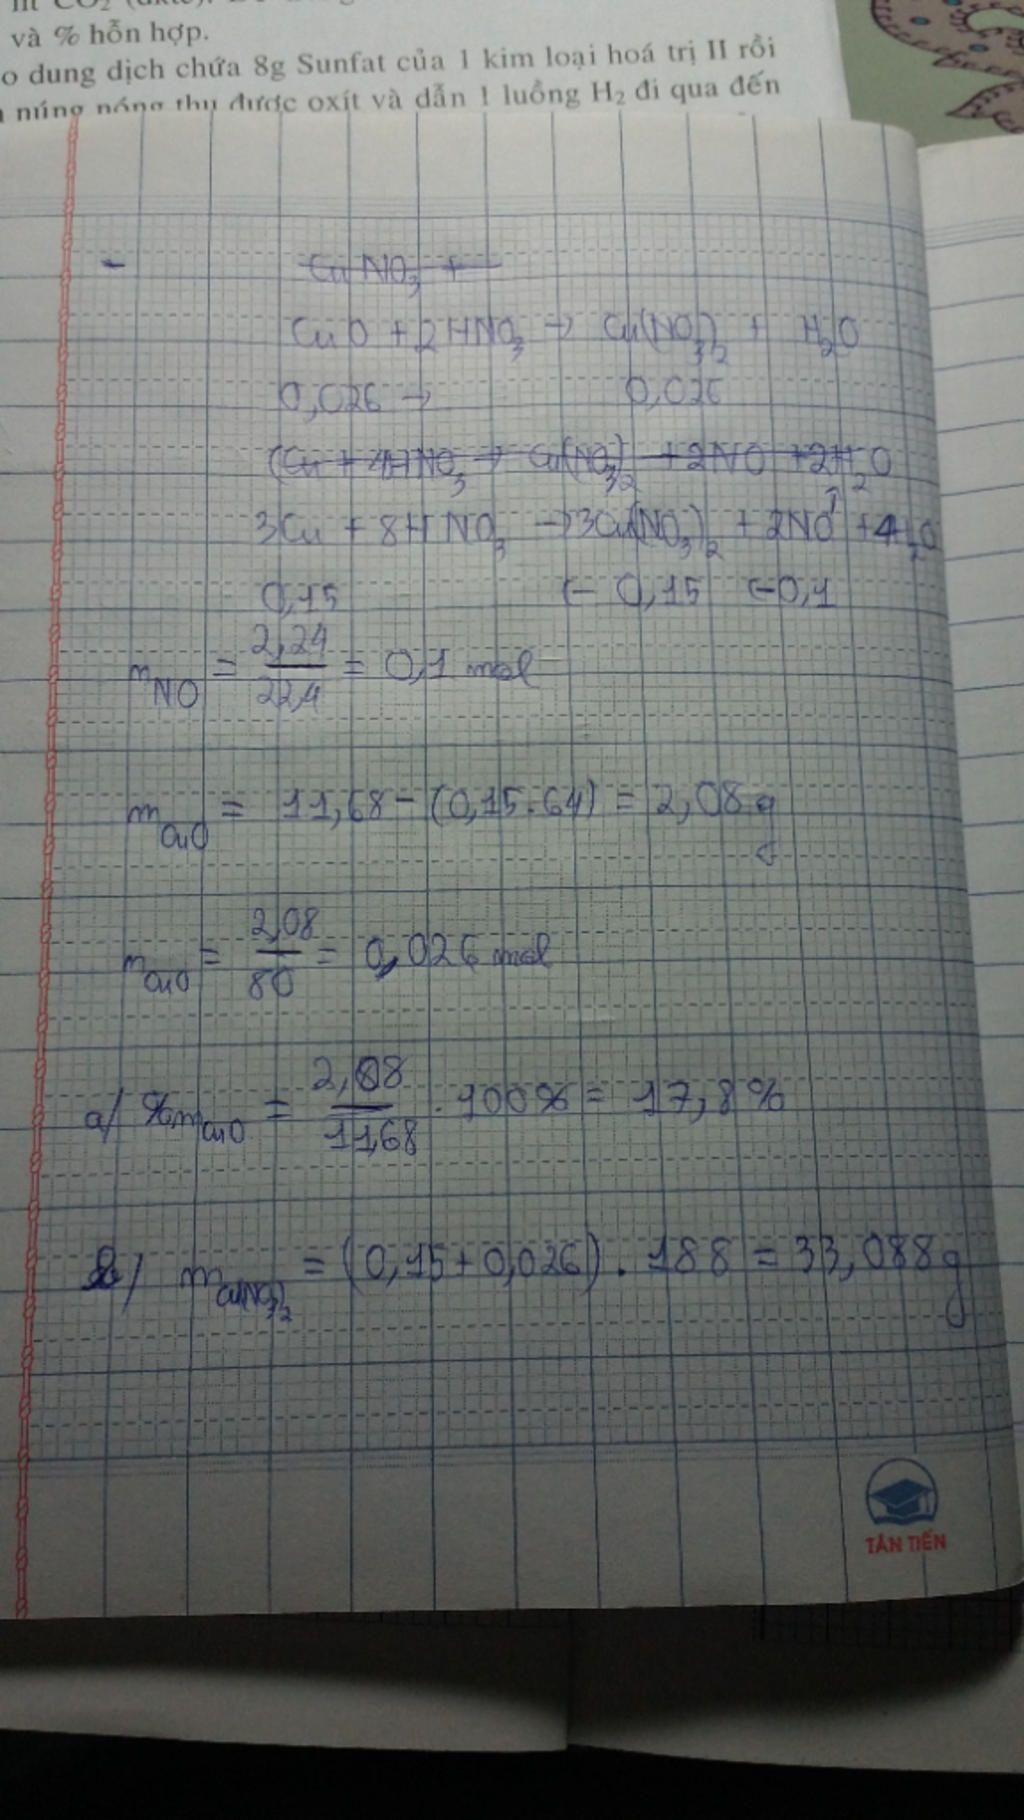 và % hỗn hợp.
o dung dịch chứa 8g Sunfat của 1 kim loại hoá trị II rồi
nóng thu được oxít và dẫn 1 luồng H₂ đi qua đến
- Cu NO₃ +
CuO + 2HNO₃ → Cu(NO₃)₂ + H₂O
0,026 → 0,026
(Cu + 4HNO₃ → Cu(NO₃)₂ + 2NO + 2H₂O
3Cu + 8HNO₃ → 3Cu(NO₃)₂ + 2NO↑ + 4H₂O
0,15 ← 0,15 ← 0,1
n_NO = 2,24/22,4 = 0,1 mol
m_CuO = 11,68 - (0,15.64) = 2,08g
n_CuO = 2,08/80 = 0,026 mol
a/ %m_CuO = 2,08/11,68 . 100% = 17,8%
b/ m_Cu(NO₃)₂ = (0,15 + 0,026) . 188 = 33,088g
TÂN TIẾN